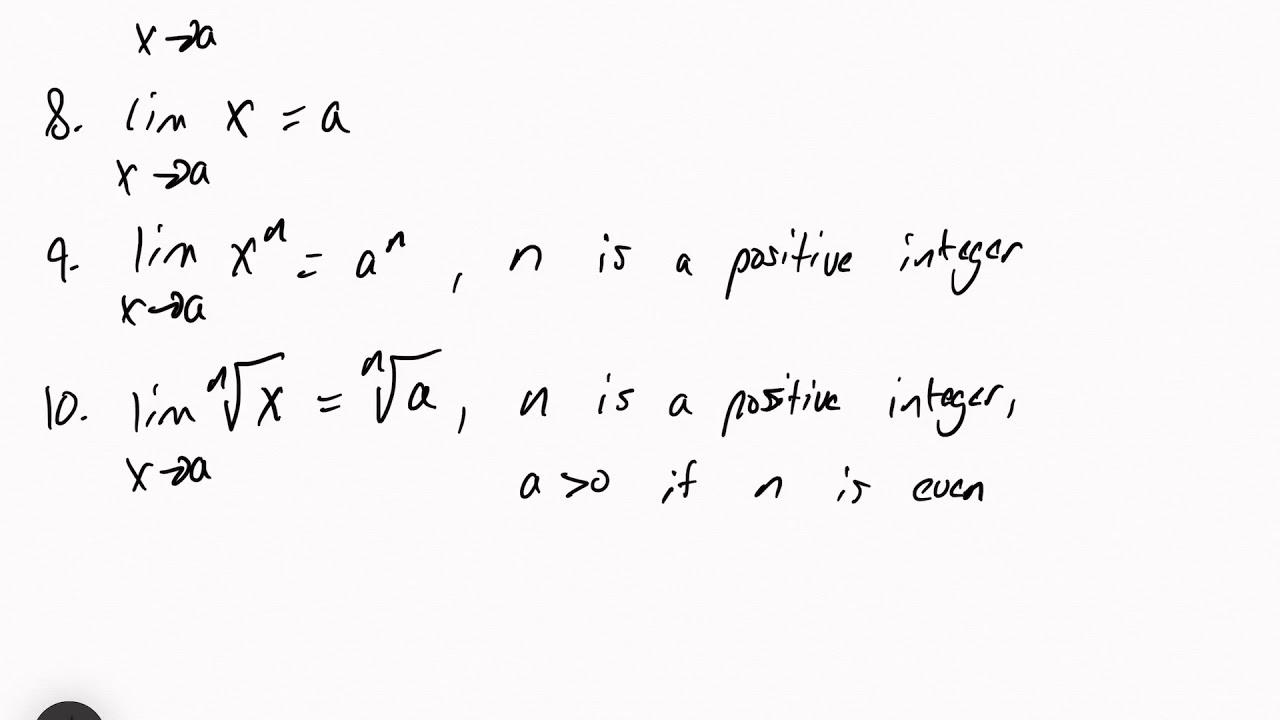 x→a
8. lim x = a
x→a
9. lim xⁿ = aⁿ , n is a positive integer
x→a
10. lim ⁿ√x = ⁿ√a , n is a positive integer,
x→a a >0 if n is even